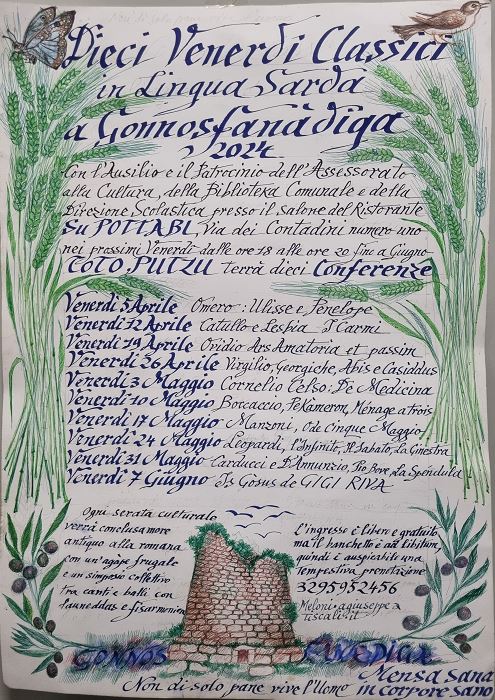 Dieci Venerdì Classici
in Lingua Sarda
a Gonnosfanàdiga
2024
Con l'Ausilio e il Patrocinio dell'Assessorato
alla Cultura, della Biblioteca Comunale e della
Direzione Scolastica presso il salone del Ristorante
Su POTTABI, Via dei Contadini numero uno
nei prossimi Venerdì dalle ore 18 alle ore 20 fino a Giugno
TOTO PUTZU terrà dieci Conferenze
Venerdì 5 Aprile Omero: Ulisse e Penelope
Venerdì 12 Aprile Catullo e Lesbia I Carmi
Venerdì 19 Aprile Ovidio Ars Amatoria et passim
Venerdì 26 Aprile Virgilio, Georgiche, Apis e
Venerdì 3 Maggio Cornelio Celso: De Medicina
Venerdì 10 Maggio Boccaccio, Ménage a trois
Venerdì 17 Maggio Manzoni, Ode Cinque Maggio
Venerdì 24 Maggio Leopardi, L'Infinito, Il Sabato, La Ginestra
Venerdì 31 Maggio Carducci e D'Annunzio, Pio Bove, La Spendula
Venerdì 7 Giugno Is Gosus de GIGI RIVA
Ogni serata culturale
verrà conclusa more
antiquo alla romana
con un'agape frugale
e un simposio collettivo
tra canti e balli con
launeddas e fisarmonica
L'ingresso è libero e gratuito
ma il banchetto è ad libitum,
quindi è auspicabile una
tempestiva prenotazione
3295952456
Meloni.agiuseppe@
tiscali.it
GONNOS
Mensa sana
in corpore sano
Non di solo pane vive l'Uomo